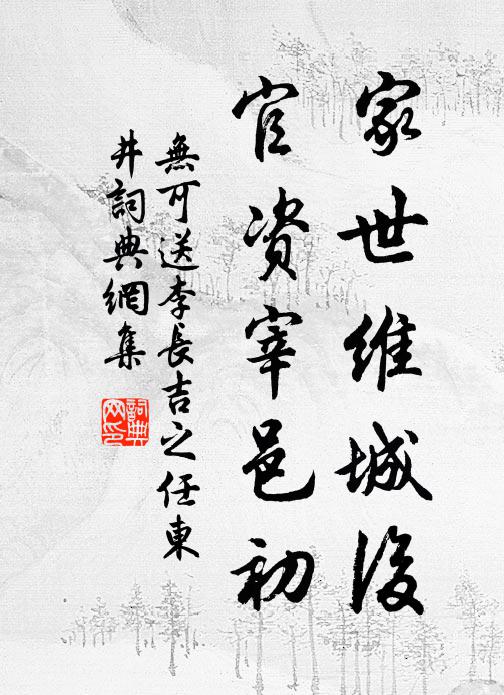 家世維城後
官资宰邑初
無可送李長吉之任東
井詞典網集
詞典網印